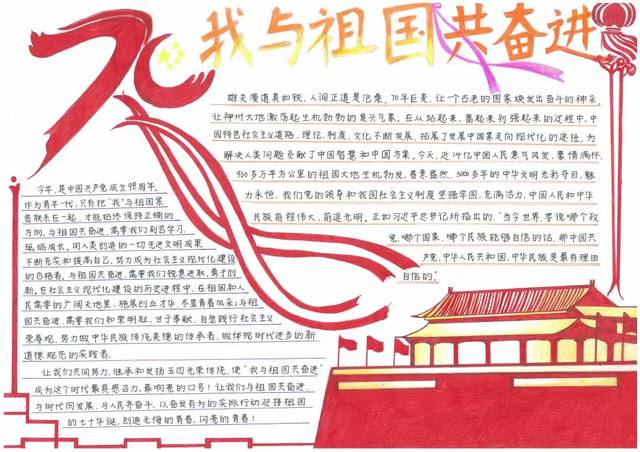 70
我与祖国共奋进
雄关漫道真如铁，人间正道是沧桑，70年巨变，让一个古老的国家焕发出奋斗的神采，
让神州大地激荡起生机勃勃的复兴气象。在从站起来，富起来到强起来的过程中，中
国特色社会主义道路、理论、制度、文化不断发展，拓展了发展中国家走向现代化的途径，为
解决人类问题贡献了中国智慧和中国方案。今天，近14亿中国人民意气风发，豪情满怀，
960多万平方公里的祖国大地生机勃发，春意盎然，5000多年的中华文明光彩夺目，魅
力永恒，我们党的领导和我国社会主义制度坚强牢固，充满活力，中国人民和中华
民族前程伟大、前途光明，正如习近平总书记所指出的，"当今世界，要说哪个政
党、哪个国家、哪个民族能够自信的话，那中国共
产党、中华人民共和国、中华民族是最有理由
自信的。"
今年，是中国共产党成立98周年，
作为青年一代，只有把"我"与祖国紧
密联系在一起，才能始终保持正确的
方向，与祖国共奋进，需要我们刻苦学习、
砥砺成长，用人类创造的一切先进文明成果
不断充实和提高自己，努力成为社会主义现代化建设
的合格者。与祖国共奋进，需要我们锐意进取、勇于创
新。在社会主义现代化建设的历史进程中，在祖国和人
民需要的广阔天地里，施展创业才华、尽显青春风采；与祖
国共奋进，需要我们知荣明耻，甘于奉献，自觉践行社会主义
荣辱观，努力做中华民族传统美德的传承者、做体现时代进步的新
道德规范的实践者。
让我们共同努力，继承和发扬五四光荣传统，使"我与祖国共奋进"
成为这个时代最具感召力、最响亮的口号！让我们与祖国共奋进，
与时代同发展，与人民齐奋斗，以奋发有为的实际行动迎接祖国
的七十华诞，创造无悔的青春、闪亮的青春！